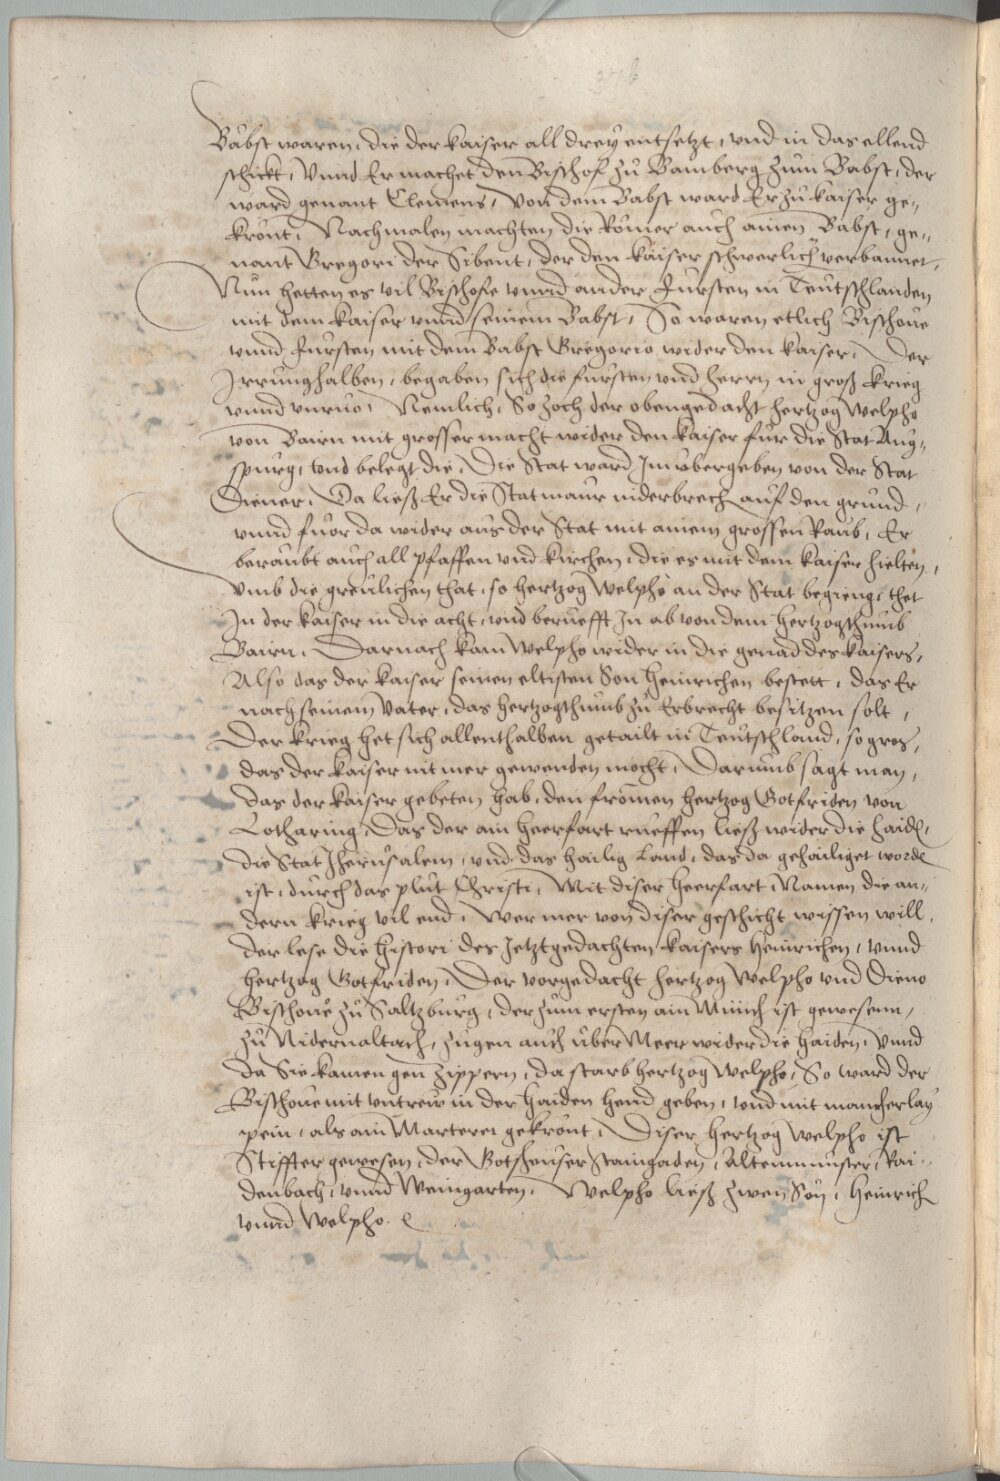 Bäbst waren, die der kaiser all drey entsetzt, vnd in das ellend
schickt, Vnnd Er machet den Bischof zů Bamberg zum Babst, der
ward genant Clemens, Von dem Babst ward Er zů kaiser ge-
krönt, Nachmalen machten die Römer auch ainen Babst, ge-
nant Gregori der Sibent, der den kaiser schwerlich verbannet,
Nun hetten es vil Bischofe vnnd ander Fürsten in Teutschlanden
mit dem kaiser vnnd seinem Babst, So waren etlich Bischoue
vnnd Fürsten mit dem Babst Gregorio wider den kaiser, Der
Irrung halben, begaben sich die fürsten vnd herrn in groß krieg
vnnd vnruo, Nemlich, So zoch der obengedacht hertzog Welpho
von Bairn mit grosser macht wider den kaiser für die Stat Aug-
spurg, vnd belegt die, Die Stat ward Im übergeben von der Stat
Diener, Da ließ Er die Statmaur niderbrech auf den grund,
vnnd fuor da wider aus der Stat mit ainem grossen Raub, Er
beraubt auch all pfaffen vnd kirchen, die es mit dem kaiser hielten,
Vmb die greulichen that, so hertzog Welpho an der Stat begieng, thet
In der kaiser in die acht, vnd berüefft In ab von dem hertzogthumb
Bairn, Darnach kam Welpho wider in die genad des kaisers,
Also das der kaiser seinen eltisten Son Heinrichen bestett, das Er
nach seinem Vater, das hertzogthumb zů Erbrecht besitzen solt,
Der krieg het sich allenthalben getailt in Teutschland, so gros,
das der kaiser nit mer gewenden mocht, Darumb sagt man,
das der kaiser gebeten hab, den fromen hertzog Gotfriden von
Lotharing, Das der ain heerfart rüeffen ließ wider die haiden,
die Stat Jherusalem, vnd das hailig Land, das da gehailiget worde
ist, durch das plut Christi, Mit diser heerfart, Namen die an-
dern krieg vil end, Wer mer von diser geschicht wissen will,
der lese die histori des Jetztgedachten kaisers Heinrichen, vnnd
hertzog Gotfriden, Der vorgedacht hertzog Welpho vnd Dieno
Bischoue zů Saltzburg, der zum ersten ain Münch ist gewesenn,
zů Nidernaltach, zugen auch über Meer wider die haiden, Vnnd
da Sie kamen gen Zippern, da starb hertzog Welpho, So ward der
Bischoue mit vntrew in der haiden hend geben, vnd mit mancherlay
pein, als ain Marterer gekrönt, Diser hertzog Welpho ist
Stiffter gewesen, der Gotsheuser Staingaden, Altenmünster, Rai-
denbach, vnnd Weingarten, Welpho ließ zwen Sön, Heinrich
vnnd Welpho.